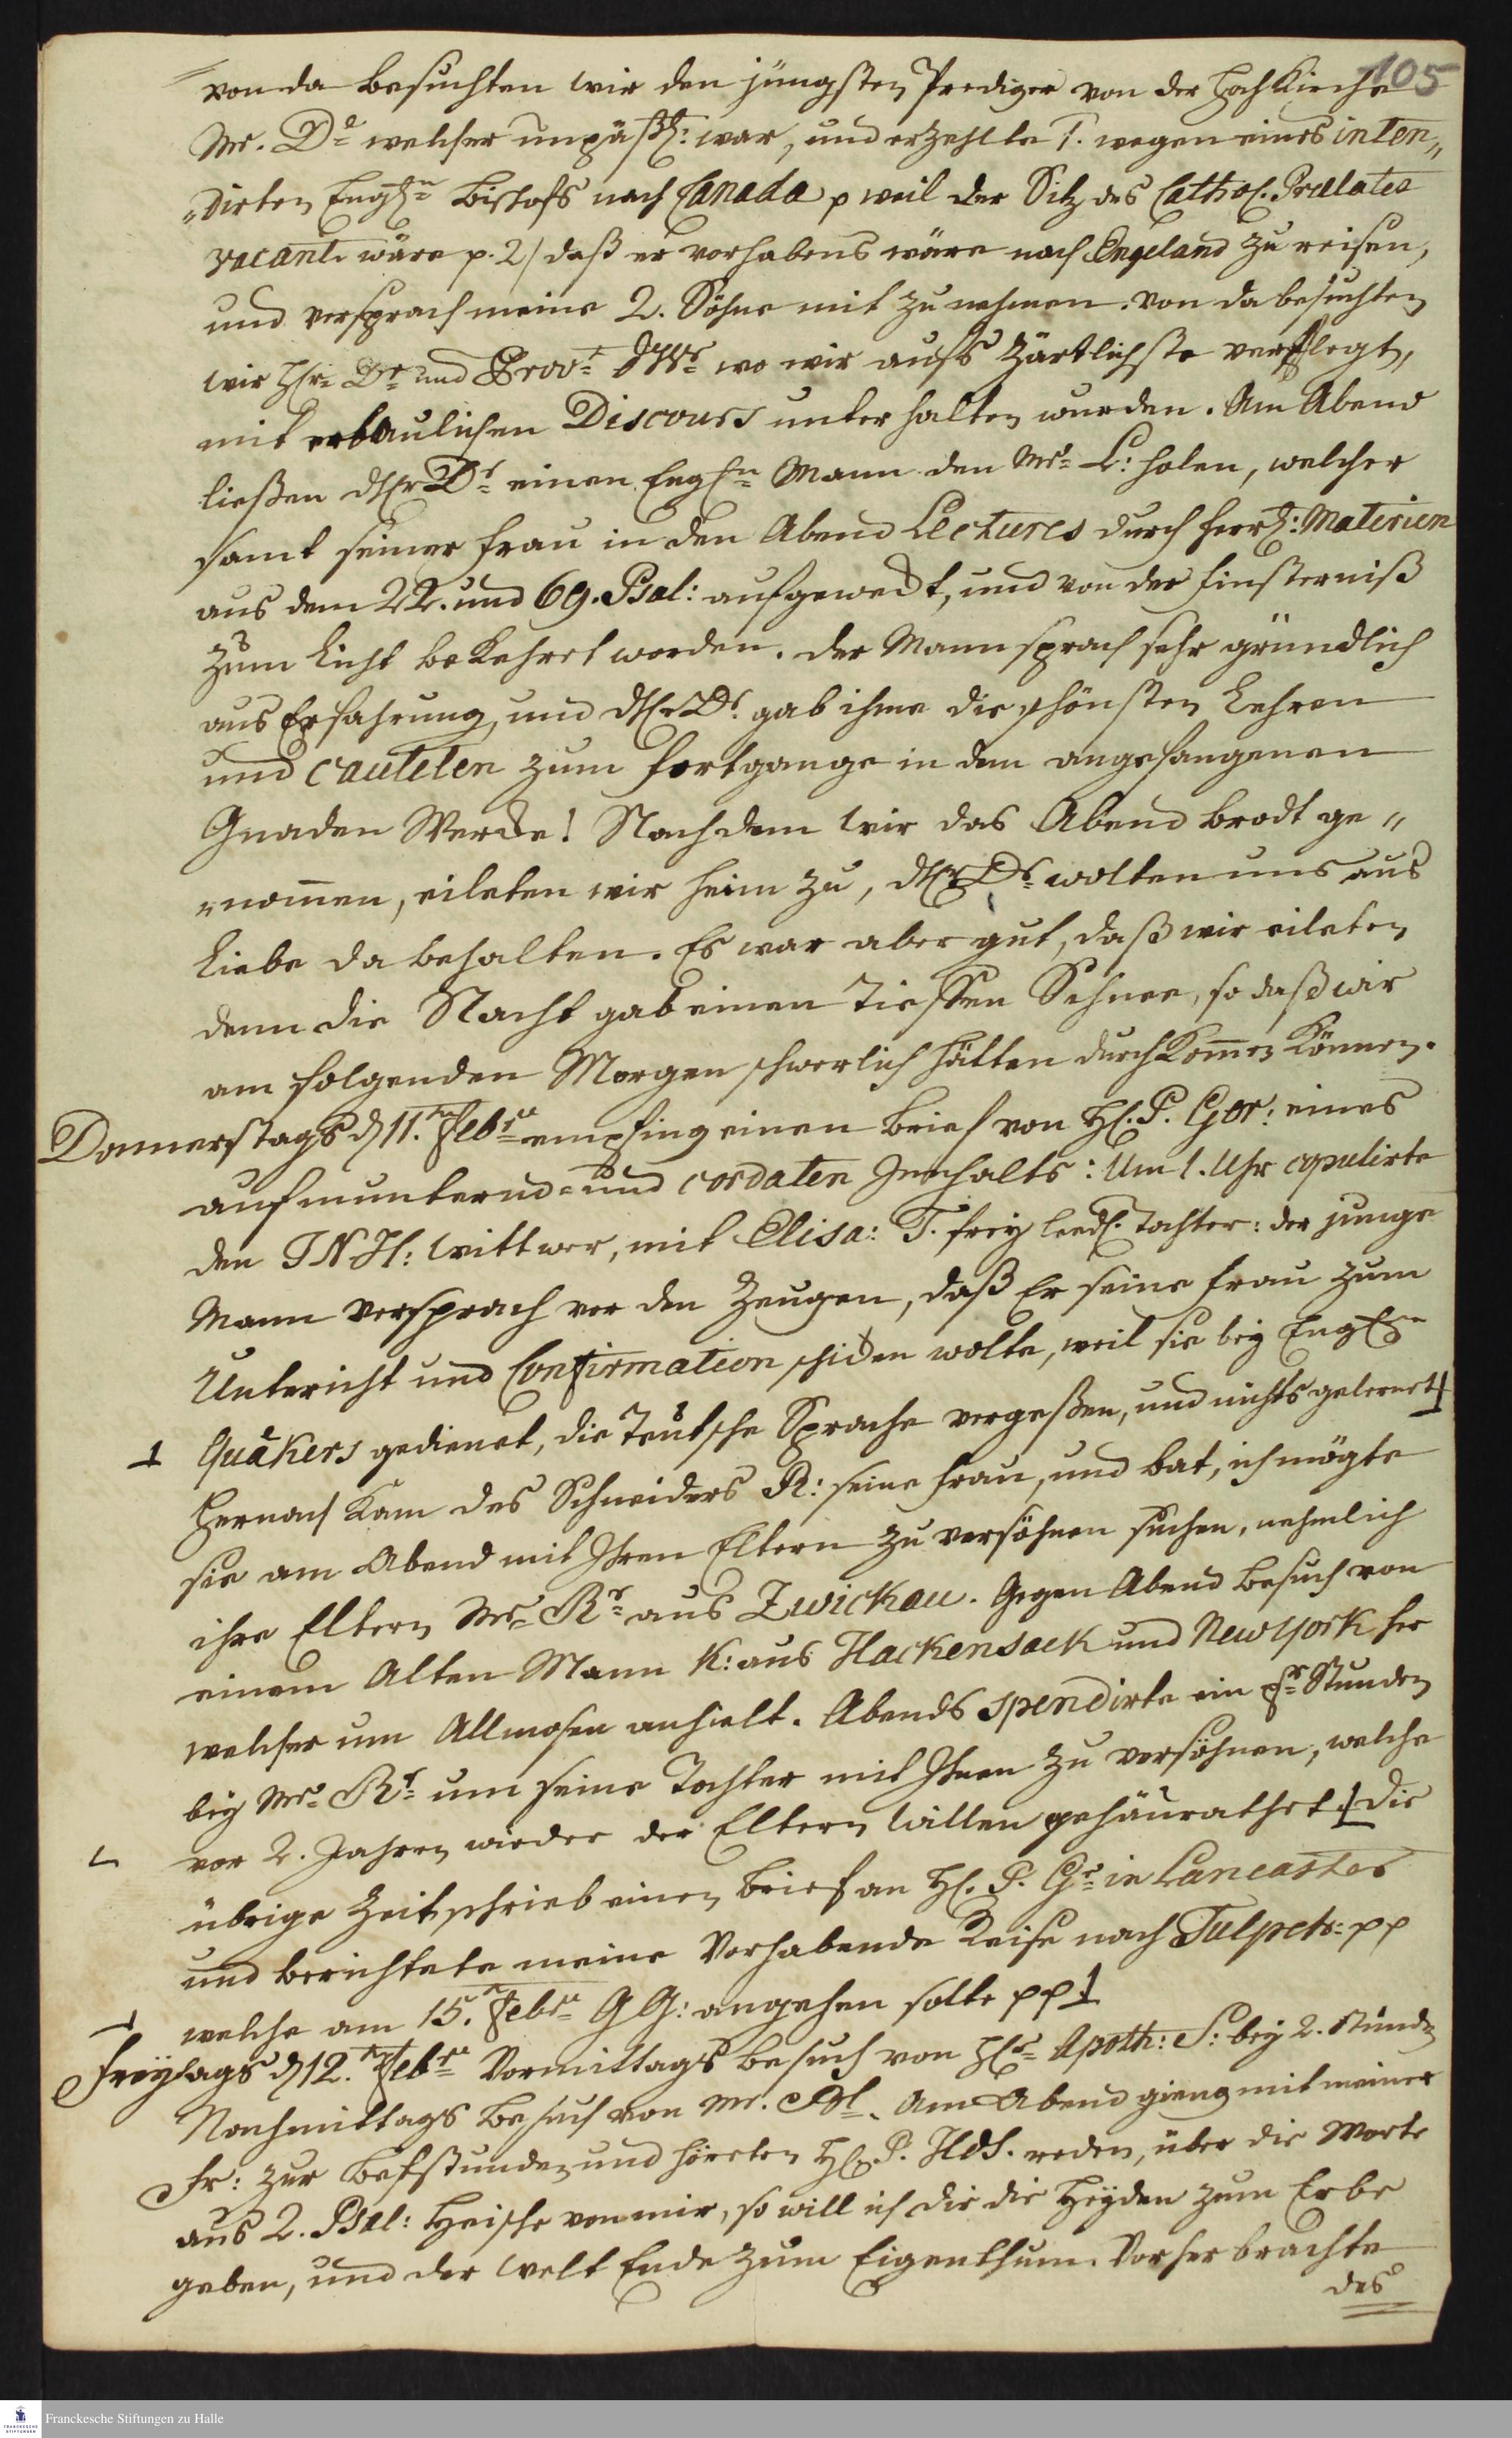 105
von da besuchten wir den jüngsten Prediger von der Hochkirche
Mr. D? welcher unpäßl: war, und erzehlte 1. wegen eines inten„
„dirten Engln Bischofs nach Canada p weil der Sitz des Cathol. Prælaten
vacant wäre p. 2/ daß er vorhabens wäre nach Engeland zu reisen,
und versprach meine 2. Söhne mit zu nehmen. von da besuchten
wir Hhr. Dr und Prov: Wr: wo wir aufs zärtlichste verpflegt,
mit erbaulichen Discours unterhalten wurden. Am Abend
ließen dHr Dr einen Engln Mann den Mr: L: holen, welcher
samt seiner Frau in den Abend Lectures durch herrl: Materien
aus dem 22. und 69. Psal: aufgeweckt, und von der Finsterniß
zum Licht bekehret worden. der Mann sprach sehr gründlich
aus Erfahrung, und dHr Dr. gab ihme die schönsten Lehren
und cautelen zum fortgange in dem angefangenen
Gnaden Wercke! Nachdem wir das Abend brodt ge„
„nom̄en, eileten wir heim zu, dHr Dr wolten uns aus
Liebe da behalten. Es war aber gut, daß wir eileten
denn die Nacht gab einen tieffen Schnee, so daß wir
am folgenden Morgen schwerlich hätten durchkom̄en können.
Donnerstags d 11.ten Febru: empfing einen Brief von HE. P. Gor: eines
aufmunternd- und cordaten Innhalts: Um 1. Uhr copulirte
den J N H: Wittwer, mit Elisa: T. frey ledl. Tochter: der junge
Mann versprach vor den Zeugen, daß Er seine Frau zum
Untericht und Confirmation schicken wolte, weil sie bey Engln
Quäkers gedienet, die Teutsche Sprache vergeßen, und nichts gelernet
Hernach kam des Schneiders R: seine Frau, und bat, ich mögte
sie am Abend mit Ihren Eltern zu versöhnen suchen, nehmlich
ihre Eltern Mr. Rr: aus Zwickau. Gegen Abend Besuch von
einem Alten Mann K: aus Hackensack und Newyork her
welcher um Allmosen anhielt. Abends spendirte ein pr: Stunden
bey Mr. Rr: um seine Tochter mit Ihnen zu versöhnen, welche
vor 2. Jahren wieder der Eltern Willen gehäurathet. die
übrige Zeit schrieb einen Brief an HE. P. Gr: in Lancaster
und berichtete meine Vorhabende Reise nach Tulpeh: pp
welche am 15.ten Febru: G G: angehen solte pp
Freytags d 12.ten Febru: Vormittags Besuch von HEr: Apoth: S: bey 2. Stund
Nachmittags Besuch von Mr. Am Abend gieng mit meiner
Fr: zur Betstunde und höreten HE. P. Hds. reden, über die Worte
aus 2. Psal: Heische von mir, so will ich dir die Heyden zum Erbe
geben, und der Welt Ende zum Eigenthum. Vorher brachte
des
Franckesche Stiftungen zu Halle